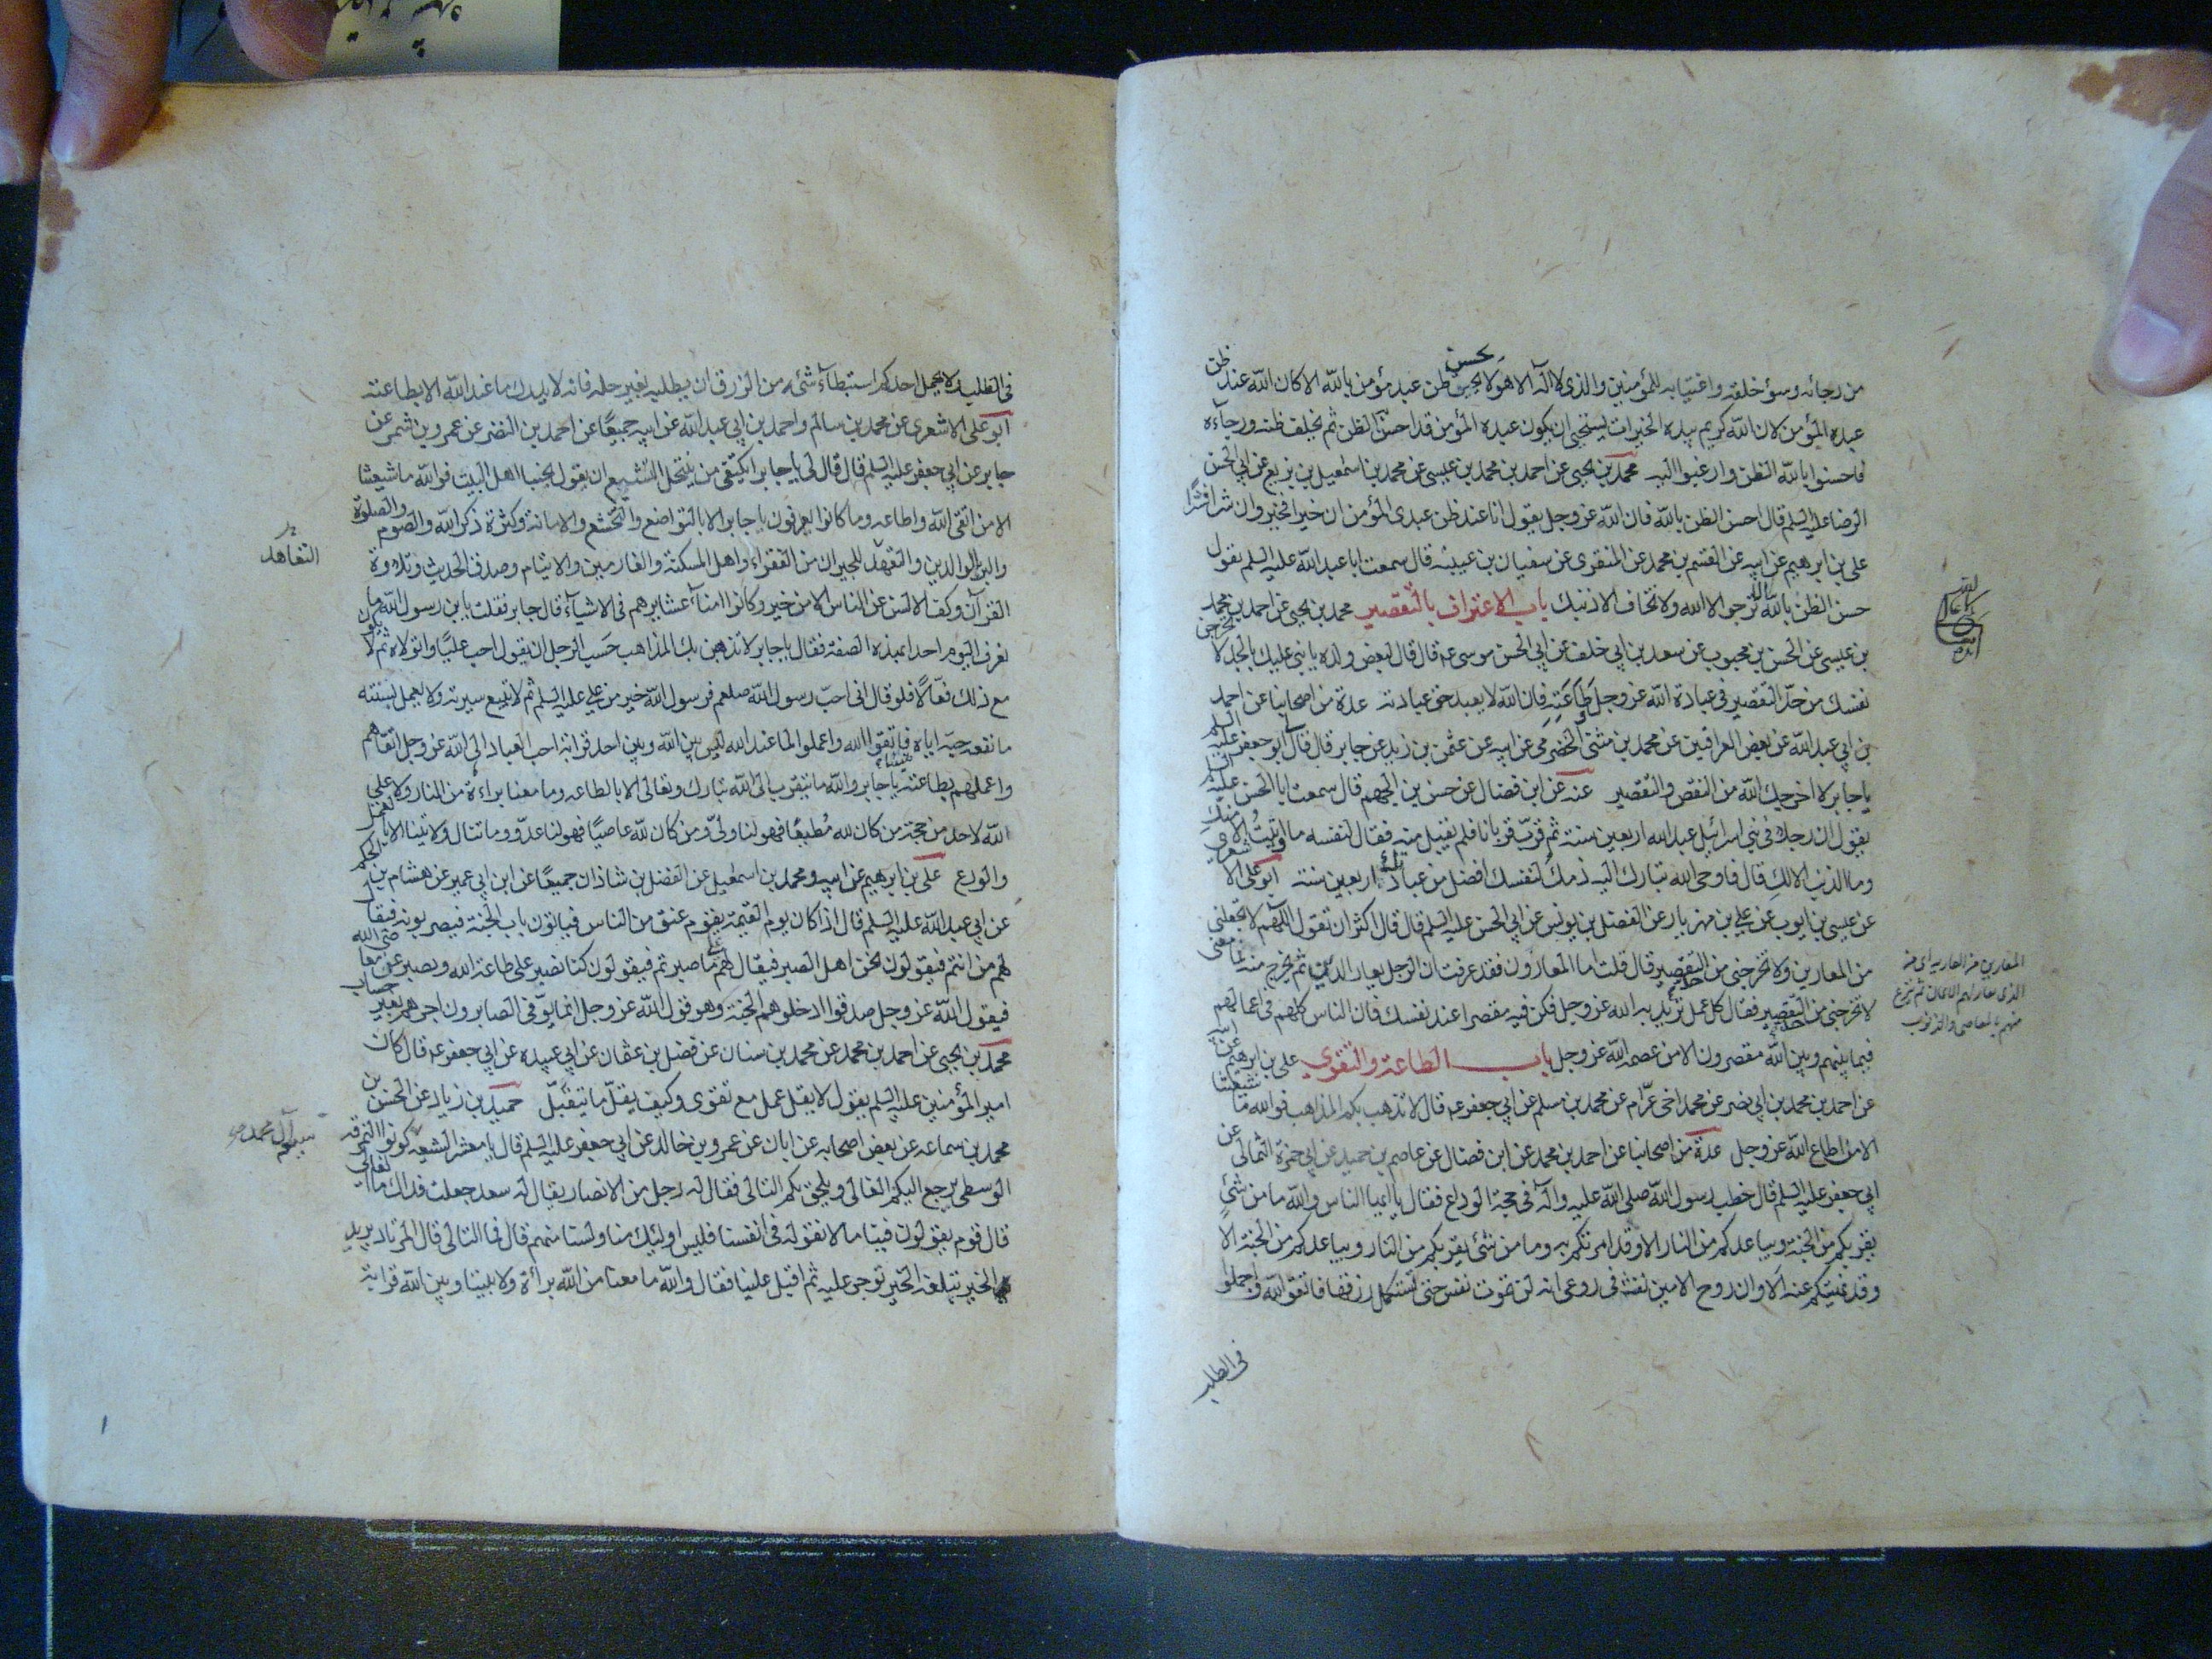 من رجائه وسوء خلقه واغتيابه للمؤمنين والذى لا اله الا هو لا يحسن ظن عبد مؤمن بالله الا كان الله عند ظن
عبده المؤمن لان الله كريم بيده الخيرات يستحيى ان يكون عبده المؤمن قد احسن الظن ثم يخلف ظنه ورجآءه
فاحسنوا بالله الظن وارغبوا اليه محمد بن يحيى عن احمد بن محمد بن عيسى عن محمد بن اسمعيل بن بزيع عن ابى الحسن
الرضا عليه السلم قال احسن الظن بالله فان الله عز وجل يقول انا عند ظن عبدى المؤمن ان خيرا فخير وان شرا فشرا
على بن ابرهيم عن ابيه عن القسم بن محمد عن المنقرى عن سفيان بن عيينه قال سمعت ابا عبد الله عليه السلم يقول
حسن الظن بالله ان لا ترجو الا الله ولا تخاف الا ذنبك باب الاعتراف بالتقصير محمد بن يحيى عن احمد بن محمد
بن عيسى عن الحسن بن محبوب عن سعد بن ابى خلف عن ابى الحسن موسى ع قال قال لبعض ولده يا بنى عليك بالجد لا تخرجن
نفسك من حد التقصير فى عبادة الله عز وجل وطاعته فان الله لا يعبد حق عبادته عدة من اصحابنا عن احمد
بن ابى عبد الله عن بعض العراقيين عن محمد بن مثنى الحضرمى عن ابيه عن عثمن بن زيد عن جابر قال قال ابو جعفر عليه السلم
يا جابر لا اخرجك الله من النقص والتقصير عنه عن ابن فضال عن حسن بن الجهم قال سمعت ابا الحسن عليه السلم
يقول ان رجلا فى بنى اسرائيل عبد الله اربعين سنة ثم قرب قربانا فلم يقبل منه فقال لنفسه ما اوتيت الا منك
وما الذنب الا لك قال فاوحى الله تبارك اليه ذمك لنفسك افضل من عبادتك اربعين سنة ابو على الاشعرى
عن عيسى بن ايوب عن على بن مهزيار عن الفضل بن يونس عن ابى الحسن عليه السلم قال قال اكثر ان تقول اللهم لا تجعلنى
من المعارين ولا تخرجنى من التقصير قال قلت اما المعارون فقد عرفت ان الرجل يعار الدين ثم يخرج منه فما معنى
لا تخرجنى من التقصير فقال كل عمل تريد به الله عز وجل فكن فيه مقصرا عند نفسك فان الناس كلهم فى اعمالهم
فيما بينهم وبين الله مقصرون الا من عصمه الله عز وجل باب الطاعة والتقوى على بن ابرهيم عن ابيه
عن احمد بن محمد بن ابى نصر عن محمد اخى عرام عن محمد بن مسلم عن ابى جعفر ع قال لا تذهب بكم المذاهب فوالله ما شيعتنا
الا من اطاع الله عز وجل عدة من اصحابنا عن احمد بن محمد عن ابن فضال عن عاصم بن حميد عن ابى حمزة الثمالى عن
ابى جعفر عليه السلم قال خطب رسول الله صلى الله عليه وآله فى حجة الوداع فقال يا ايها الناس والله ما من شئ
يقربكم من الجنة ويباعدكم من النار الا وقد امرتكم به وما من شئ يقربكم من النار ويباعدكم من الجنة الا
وقد نهيتكم عنه الا وان روح الامين نفث فى روعى انه لن تموت نفس حتى تستكمل رزقها فاتقوا الله واجملوا
فى الطلب
المعارين من العارية اى من
الذى يعار لهم الايمان ثم ينزع
منهم بالمعاصى والذنوب
فى الطلب ولا يحمل احدكم استبطآء شئ من الرزق ان يطلبه بغير حله فانه لا يدرك ما عند الله الا بطاعته
ابو على الاشعرى عن محمد بن سالم واحمد بن ابى عبد الله عن ابيه جميعًا عن احمد بن النضر عن عمرو بن شمر عن
جابر عن ابى جعفر عليه السلم قال قال لى يا جابر ايكتفى من ينتحل التشيع ان يقول بحبنا اهل البيت فوالله ما شيعتنا
الا من اتقى الله واطاعه وما كانوا يعرفون يا جابر الا بالتواضع والتخشع والامانة وكثرة ذكر الله والصوم والصلوة
والبر بالوالدين والتعهد للجيران من الفقراء واهل المسكنة والغارمين والايتام وصدق الحديث وتلاوة
القرآن وكف الالسن عن الناس الا من خير وكانوا امناء عشايرهم فى الاشياء قال جابر فقلت يا بن رسول الله ما
نعرف اليوم احدا بهذه الصفة فقال يا جابر لا تذهبن بك المذاهب حسب الرجل ان يقول احب عليًا واتولاه ثم لا يكون
مع ذلك فعّالًا فلو قال انى احب رسول الله صلعم فرسول الله خير من على عليه السلم ثم لا يتبع سيرته ولا يعمل بسنته
ما نفعه حبه اياه شيئا فاتقوا الله واعملوا لما عند الله ليس بين الله وبين احد قرابة احب العباد الى الله عز وجل اتقاهم
واعملهم بطاعته يا جابر والله ما يتقرب الى الله تبارك وتعالى الا بالطاعه وما معنا براءة من النار ولا على
الله لاحد من حجة من كان لله مطيعًا فهو لنا ولى ومن كان لله عاصيًا فهو لنا عدو وما تنال ولايتنا الا بالعمل
والورع على بن ابرهيم عن ابيه ومحمد بن اسمعيل عن الفضل بن شاذان جميعًا عن ابن ابى عمير عن هشام بن الحكم
عن ابى عبد الله عليه السلم قال اذا كان يوم القيمة يقوم عنق من الناس فياتون باب الجنة فيضربونه فيقال
لهم من انتم فيقولون نحن اهل الصبر فيقال لهم على ما صبرتم فيقولون كنا نصبر على طاعة الله ونصبر عن معاصى الله
فيقول الله عز وجل صدقوا ادخلوهم الجنة وهو قول الله عز وجل انما يوفى الصابرون اجرهم بغير حساب
محمد بن يحيى عن احمد بن محمد عن محمد بن سنان عن فضيل بن عثمان عن ابى عبيده عن ابى جعفر ع قال كان
امير المؤمنين عليه السلم يقول لا يقل عمل مع تقوى وكيف يقل ما يتقبل حميد بن زياد عن الحسن بن
محمد بن سماعه عن بعض اصحابه عن ابان عن عمرو بن خالد عن ابى جعفر عليه السلم قال يا معشر الشيعه كونوا النمرقة
الوسطى يرجع اليكم الغالى ويلحق بكم التالى فقال له رجل من الانصار يقال له سعد جعلت فداك ما الغالى
قال قوم يقولون فينا ما لا نقوله فى انفسنا فليس اولئك منا ولسنا منهم قال فما التالى قال المرتاد يريد
الخير يبلغه الخير يوجر عليه ثم اقبل علينا فقال والله ما معنا من الله برأة ولا بيننا وبين الله قرابة
التعاهد